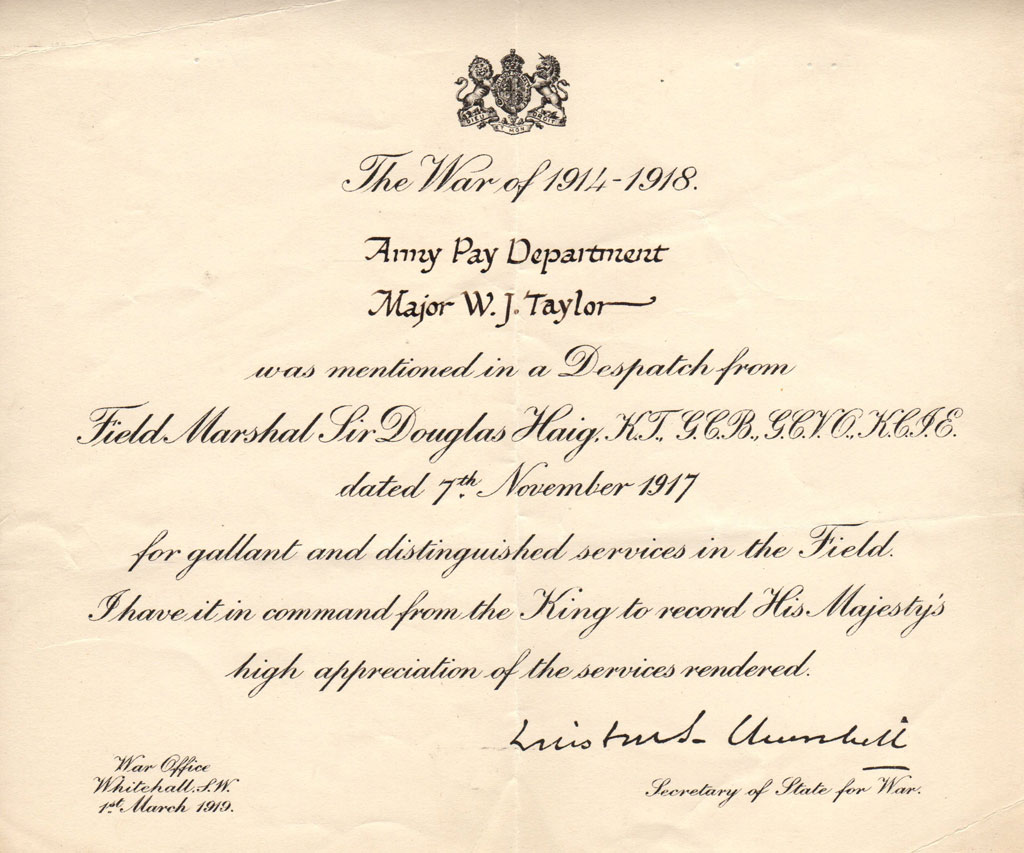 DIEU ET MON DROIT
The War of 1914-1918.
Army Pay Department
Major W. J. Taylor
was mentioned in a Despatch from
Field Marshal Sir Douglas Haig, K.T., G.C.B., G.C.V.O., K.C.I.E.
dated 7th November 1917
for gallant and distinguished services in the Field.
I have it in command from the King to record His Majesty's
high appreciation of the services rendered.
Winston S. Churchill
Secretary of State for War.
War Office
Whitehall, S.W.
1st March 1919.